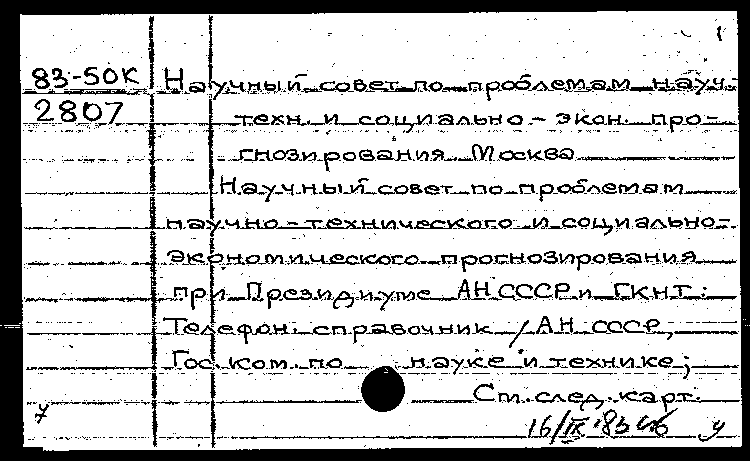 1
83-50К Научный совет по проблемам науч.-
2807 техн. и социально-экон. про-
гнозирования. Москва
Научный совет по проблемам
научно-технического и социально-
экономического прогнозирования
при Президиуме АН СССР и ГКНТ:
Телефон. справочник / АН СССР,
Гос. ком. по науке и технике;
См. след. карт.
16/IX-83 у